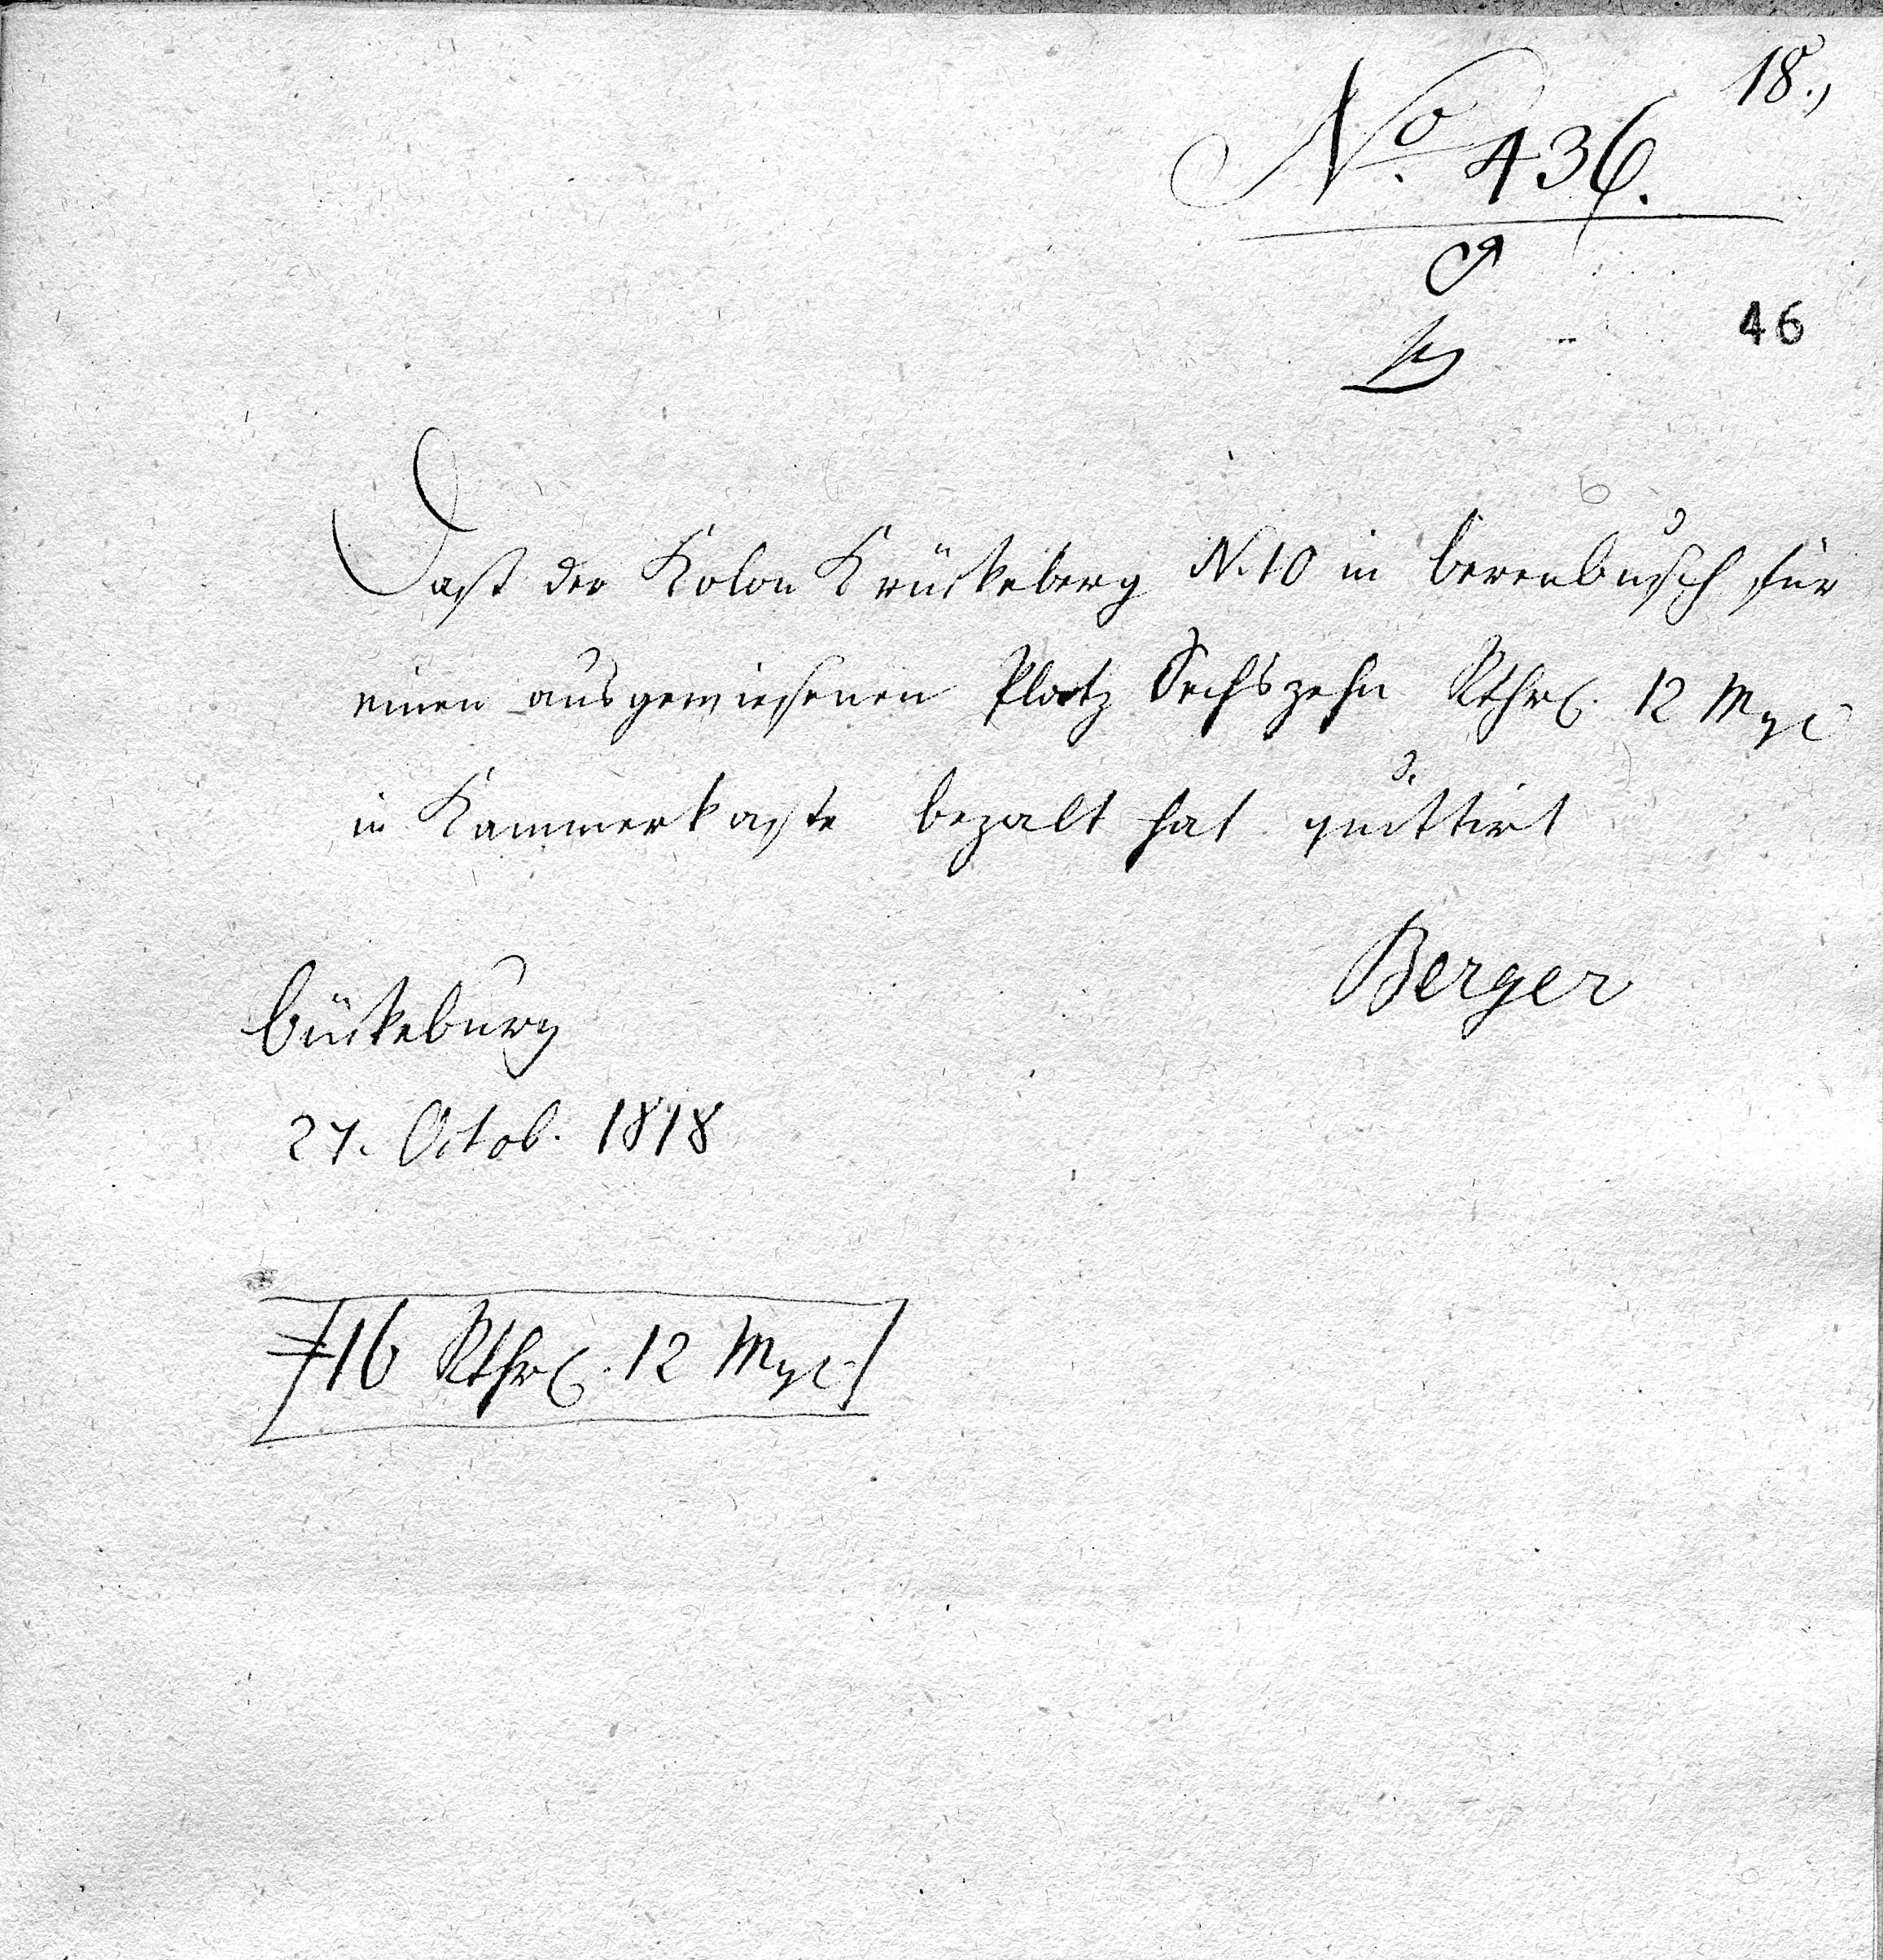 18.,
No. 436.
46
Dass der Kolon Krückeberg N. 10 in Berenbusch für
einen ausgewiesenen Platz Sechszehn Rthlr. 12 Mgl
in Kammerkasse bezalt hat quittirt
Berger
Bückeburg
27. Octob. 1818
16 Rthlr. 12 Mgl